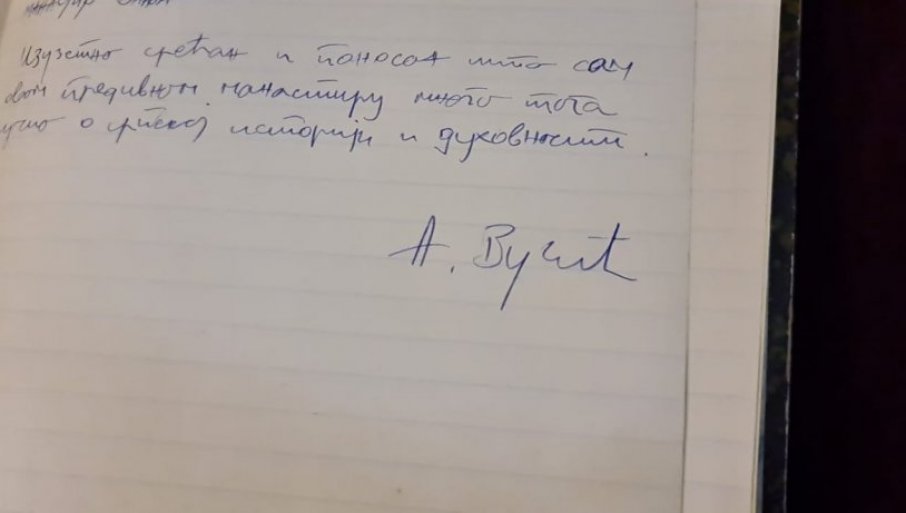 манастир
Изузетно срећан и поносан што сам у
овом предивном манастиру много тога
о српској историји и духовности.
А. Вучић